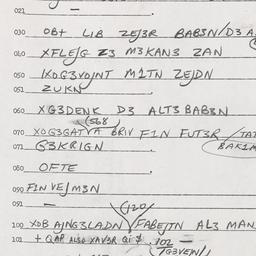 021
030 OBT LIB ZEJ3R BAB3N/D3 A
040 XFLEJG Z3 M3KANS ZAN
050 IXOG3VOJNT M1TN ZEJDN
051 ZUKN
060 XG3DENK D3 ALT3 BAB3N
(568)
070 XOG3GAT VA BRIV F1N FUT3R / TAT
071 G3KRIGN (BAK1M
080 OFTE
090 FIN VEJM3N
091 —
(120)
100 XOB AJNG3LADN / FABEJTN AL3 MAN
101 + QAP ALSO XAV3R Qi $ . 102 —
(/G3VEJN/)